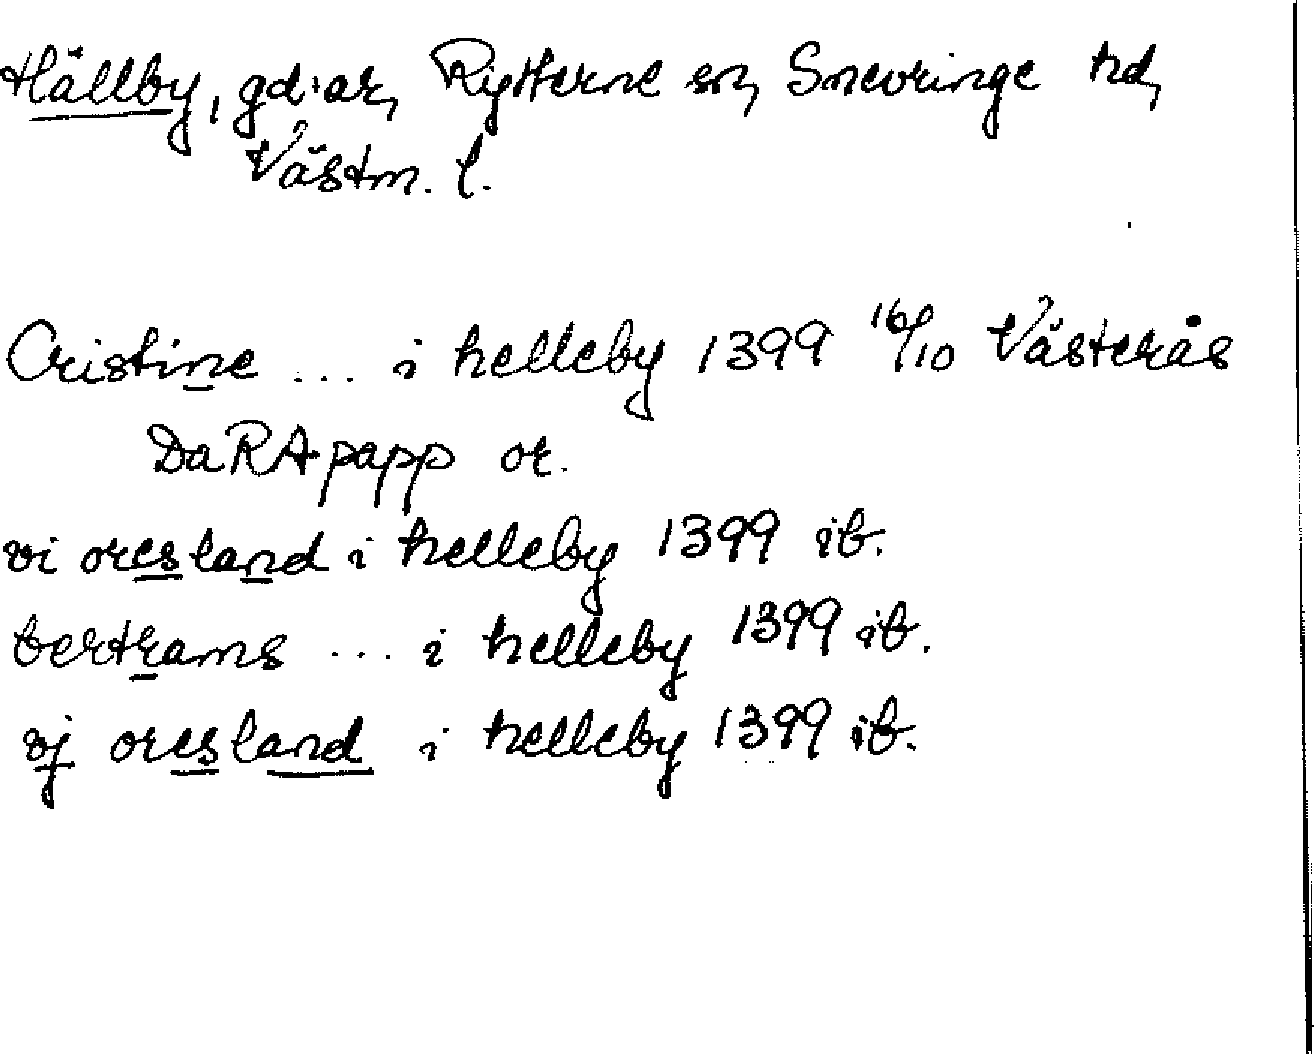 Hällby, gd:ar, Rytterne sn, Snevringe hd,
Västm. l.
Cristine ... i helleby 1399 16/10 Västerås
DaRA papp or.
vi oresland i helleby 1399 ib.
bertrams ... i helleby 1399 ib.
vj oresland i helleby 1399 ib.